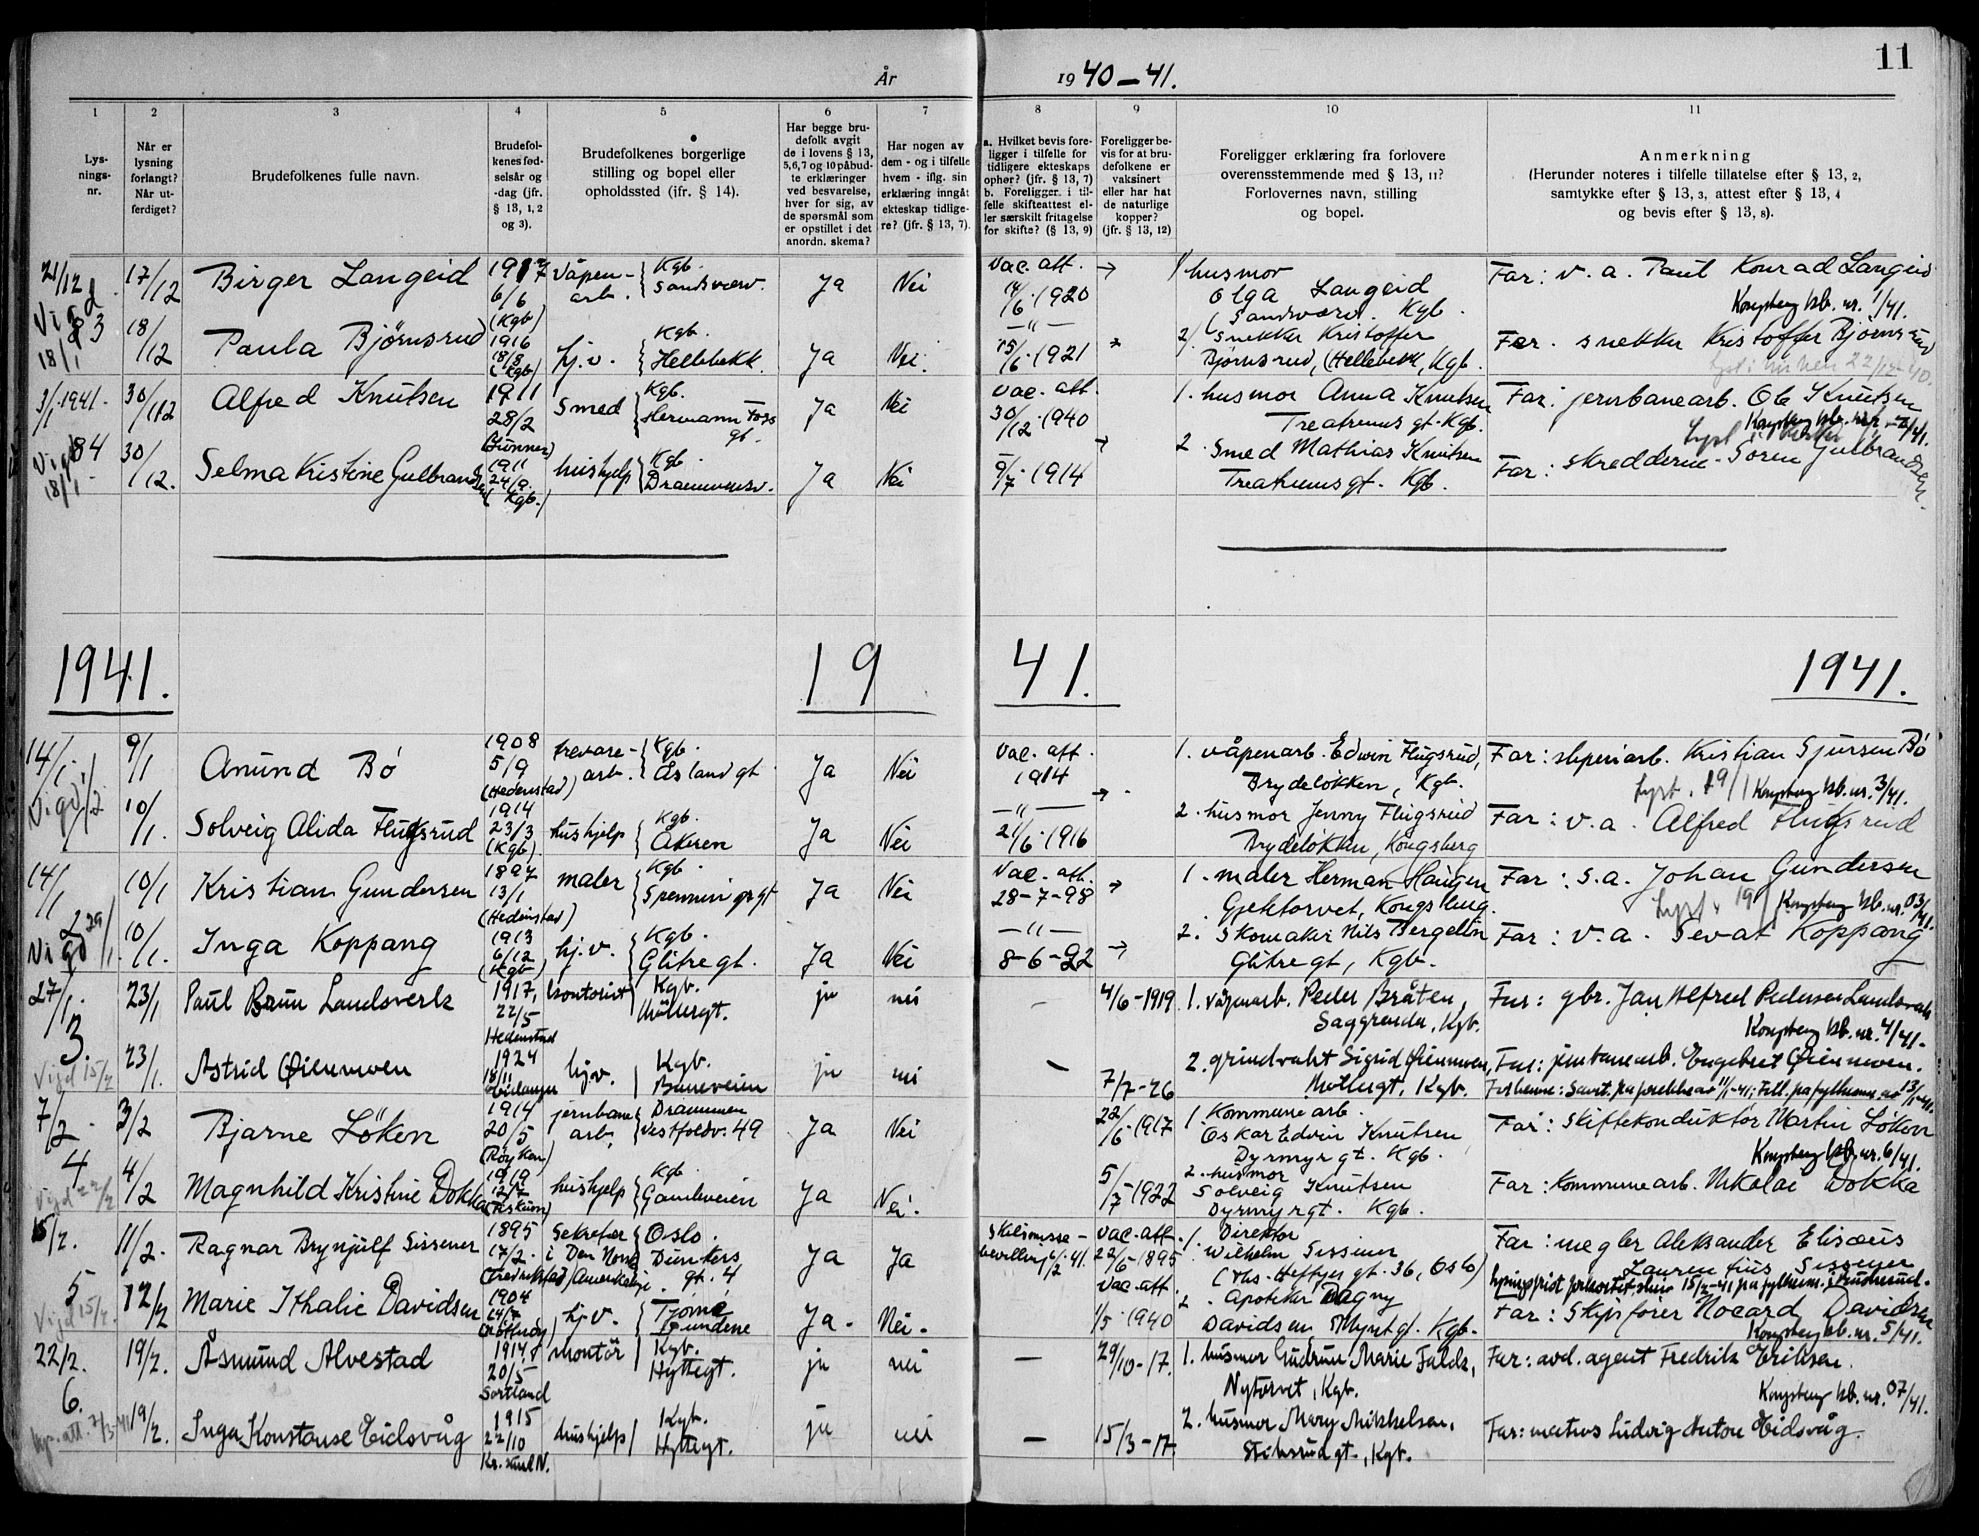 11
År 1940-41.
1 2 3 4 5 6 7 8 9 10 11
Lys-
nings-
nr.
Når er
lysning
forlangt?
Når ut-
ferdiget?
Brudefolkenes fulle navn.
Brudefol-
kenes fød-
selsår og
-dag (jfr.
§ 13, 1, 2
og 3).
Brudefolkenes borgerlige
stilling og bopel eller
opholdssted (ifr. § 14).
Har begge bru-
defolk avgit
de i lovens § 13,
5,6,7 og 10 påbud-
te erklæringer
ved besvarelse,
hver for sig, av
de spørsmål som
er opstillet i det
anordn. skema?
Har nogen av
dem - og i tilfelle
hvem - iflg. sin
erklæring inngåt
ekteskap tidlige-
re? (jfr. § 13, 7).
a. Hvilket bevis fore-
ligger i tilfelle for
tidligere ekteskaps
ophør? (jfr. § 13, 7)
b. Foreligger i til-
felle skifteattest el-
ler særskilt fritagelse
for skifte? (§ 13, 9)
Foreligger be-
vis for at bru-
defolkene er
vaksinert
eller har hat
de naturlige
kopper?
(jfr. § 13, 12)
Foreligger erklæring fra forlovere
overensstemmende med § 13, 11?
Forlovernes navn, stilling
og bopel.
Anmerkning
(Herunder noteres i tilfelle tillatelse efter § 13, 2,
samtykke efter § 13, 3, attest efter § 13, 4
og bevis efter § 13, 8).
21/12 17/12 Birger Langeid 1917 6/6 (Kgb) Våpen-arb. Kgb. Sandsværv. Ja Nei Vac. att. 14/6-1920 1) husmor
Olga Langeid
Sandsværv. Kgb.
Far: v. a. Paul Konrad Langeid
Kongsberg kb. nr. 1/41.
83 Vigd 18/1 18/12 Paula Bjørnsrud 1916 18/8 (Kgb) hj.v. Kgb. Hellebekk. Ja Nei. -"- 15/6-1921 2) Snekker Kristoffer
Bjørnsrud, (Hellebekk, Kgb.
Far. snekker Kristoffer Bjørnsrud
22/12-40.
3/1-1941 30/12 Alfred Knutsen 1911 28/2 smed Kgb. Hermann Foss gt. Ja Nei Vac. att. 30/12-1940 1. husmor Anna Knutsen
Treatrums gt. Kgb.
Far: jernbanearb. Ole Knutsen
Kongsberg kb. nr. 2/41.
84 Vigd 18/1 30/12. Selma Kristine Gulbrandsen 1911 24/9 (Kgb.) hushjelp Kgb. Drammensv. Ja Nei 9/7-1914 2. Smed Mathias Knutsen
Treatrumsgt. Kgb.
Far: skredderm. Søren Gulbrandsen.
1941. 19 41. 1941.
14/1 9/1 Anund Bö 1908 5/9 (Hedenstad) trevare-arb. Kgb. Åsland gt. Ja Nei Vac. att. 1914 1. våpenarb. Edwin Flugsrud,
Brydeløkken, Kgb.
Far: sliperiarb. Kristian Sjursen Bö
Lyst. 19/1 Kongsberg kb. nr. 3/41.
Vigd 1/2 10/1. Solveig Alida Flugsrud 1914 23/3 (Kgb) hushjelp Kgb. Åkeren Ja Nei -"- 21/6-1916 2. husmor Jenny Flugsrud
Brydeløkken, Kongsberg
Far: v.a. Alfred Flugsrud
14/1 10/1 Kristian Gundersen 1897 13/1 (Hedenstad) maler Kgb. Ja Nei Vac. att. 28-7-98 1. maler Herman Haugen
Gjeltorvet, Kongsberg.
Far: s.a. Johan Gundersen
Lyst. 19/1 Kongsberg kb. nr. 03/41.
2 Vigd 29/1. 10/1. Inga Koppang 1913 6/12 (Kgb) hj.v. Kgb. Glitregt. Ja Nei -"- 8-6-22 2. Skomaker Nils Bergelin
Glitregt, Kgb.
Far: v.a. Sevat Koppang
27/1. 23/1 Paul Brun Landsverk 1917, 22/5 Hedenstad kontorist Kgb. Møllergt. ja nei - 4/6-1919 1. våpenarb. Peder Bråten,
Saggrenda, Kgb.
Far: gbr. Jan Alfred Pedersen Landsverk
Kongsberg kb. nr. 4/41.
3. Vigd 15/2 23/1. Astrid Øienmoen 1924 18/11 hj.v. Kgb. Baneveien ja nei - 7/7-26 2. grindvakt Sigrid Øienmoen,
Møllergt, Kgb.
Far: jernbanearb. Engebret Øienmoen.
7/2 3/2 Bjarne Löken 1914 20/5 (Röyken) jernbane arb. Drammen Vestfoldv. 49 Ja Nei 22/6-1917 1. Kommunearb.
Oskar Edvin Knutsen
Dyrmyrgt. Kgb.
Far: skiftekonduktør Martin Löken
Kongsberg kb. nr. 6/41.
4 Vigd 22/2 4/2 Magnhild Kristine Dokka 1919 12/7 hushjelp Kgb. Gamleveien Ja Nei. 5/7-1922 2. husmor
Solveig Knutsen
Dyrmyrgt. Kgb.
Far: Kommunearb. Nikolai Dokka
15/2. 11/2. Ragnar Brynjulf Sissener 1895 17/2. (Fredrikstad) Sekretær i Den Norsk Amerikalinje. Oslo. Dunkers gt. 4 Ja Ja Skilsmisse-bevilling 6/2 41. Vac. att. 22/6-1895 1. Direktør
Wilhelm Sissener
(Ths. Heftyes gt. 36, Oslo)
Far: megler Aleksander Elisæus
Laurentius Sissener
5 Vigd 15/2. 12/2 Marie Ithalie Davidsen 1904 hj.v. Tjøme Ja. Nei. Vac. att. 1/5-1940 2. Apoteker Dagny
Davidsen Myntgt. Kgb.
Far: Skipsfører Nocard Davidsen
Kongsberg kb. nr. 5/41.
22/2. 19/2. Åsmund Alvestad 1914, 20/5 Sortland montør Kgb. Hyttegt. ja nei - 29/10-17. 1. husmor Gudrun Marie Falck,
Nytorvet, Kgb.
Far: avd. agent Fredrik Eriksen.
Kongsberg kb. nr. 07/41.
6. 7/3-41 19/2. Inga Konstanse Eidsvåg 1915 22/10 Kr.sund N. hushjelp Kgb. Hyttegt. ja nei - 15/3-17. 2. husmor Mary Mikkelsen,
Stiksrudgt., Kgb.
Far: matros Ludvig Anton Eidsvåg.